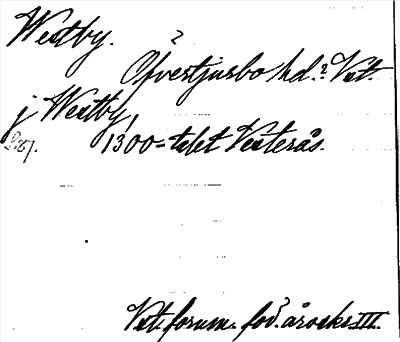 Westby.
?
Öfvertjurbo hd.? Vst.
j Westby,
1300-talet Vesterås.
Vst. fornm. för. årsskr. III.